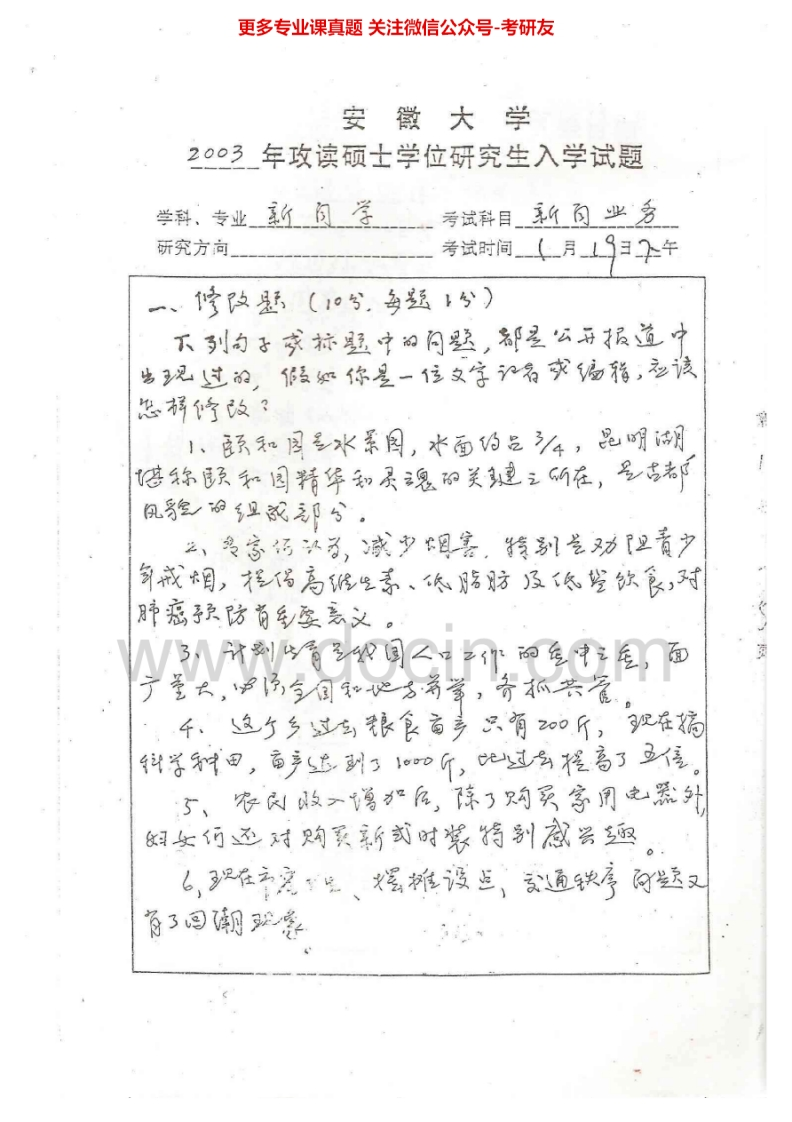 更多专业课真题 关注微信公众号-考研友
安徽大学
2003年攻读硕士学位研究生入学试题
学科、专业 新闻学 考试科目 新闻业务
研究方向 考试时间 1月19日下午
一、修改题(10分,每题1分)
下列句子或标题中的问题,都是公开报道中
出现过的,假如你是一位文字记者或编辑,应该
怎样修改?
1、颐和园是水景园,水面约占3/4,昆明湖
堪称颐和园精华和灵魂的关键之所在,是古都
风貌的组成部分。
2、专家们认为,减少烟害,特别是劝阻青少
年戒烟,提倡高维生素、低脂肪及低盐饮食,对
肺癌预防有重要意义。
www.docin.com
3、计划生育是我国人口工作的重中之重,面
广量大,必须全国和地方并举,齐抓共管。
4、这个乡过去粮食亩产只有200斤,现在搞
科学种田,亩产达到了1000斤,比过去提高了五倍。
5、农民收入增加后,除了购买家用电器外,
妇女们还对购买新式时装特别感兴趣。
6、现在、摆摊设点,交通秩序问题又
有了回潮现象。